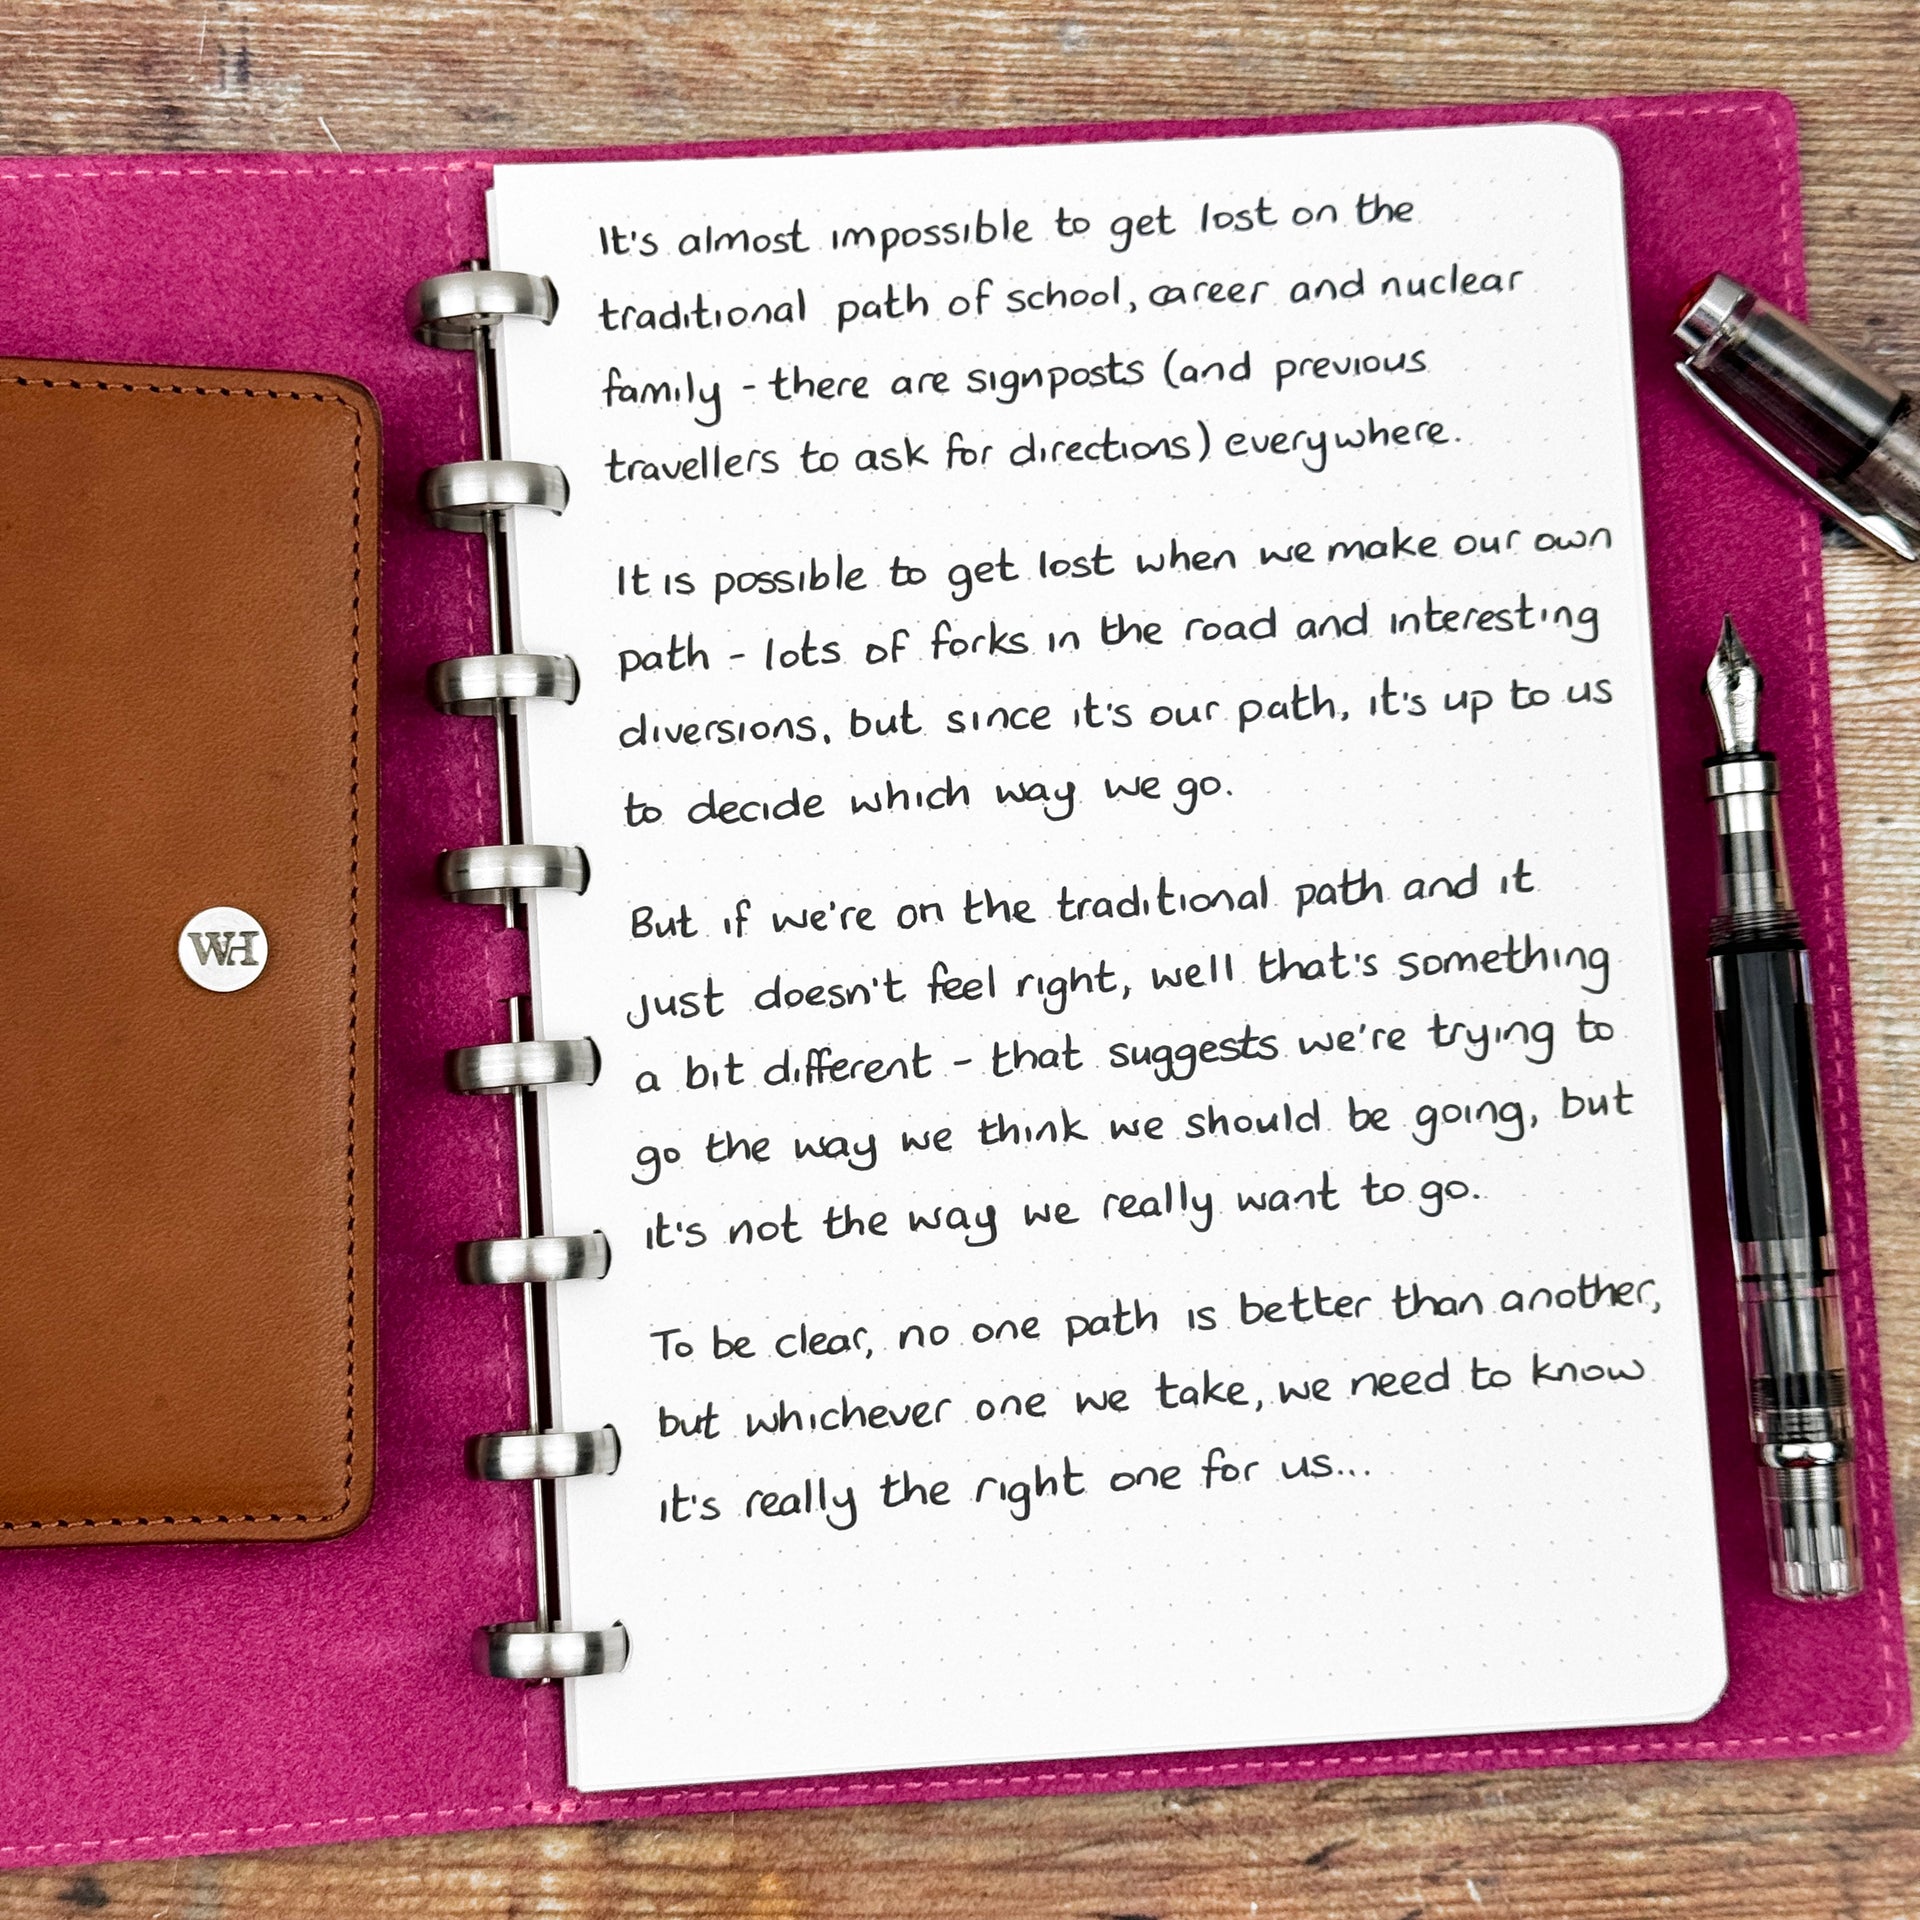 It's almost impossible to get lost on the
traditional path of school, career and nuclear
family - there are signposts (and previous
travellers to ask for directions) everywhere.
It is possible to get lost when we make our own
path - lots of forks in the road and interesting
diversions, but since it's our path, it's up to us
to decide which way we go.
But if we're on the traditional path and it
just doesn't feel right, well that's something
a bit different - that suggests we're trying to
go the way we think we should be going, but
it's not the way we really want to go.
To be clear, no one path is better than another,
but whichever one we take, we need to know
it's really the right one for us...
WH